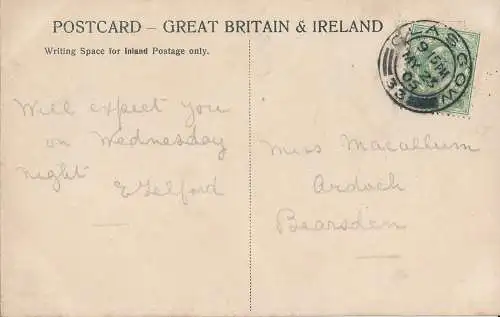 POSTCARD – GREAT BRITAIN & IRELAND
Writing Space for Inland Postage only.
GLASGOW
MY 2
05
33
Will expect you
on Wednesday
night
E Telford
Miss Macallum
Ardoch
Bearsden